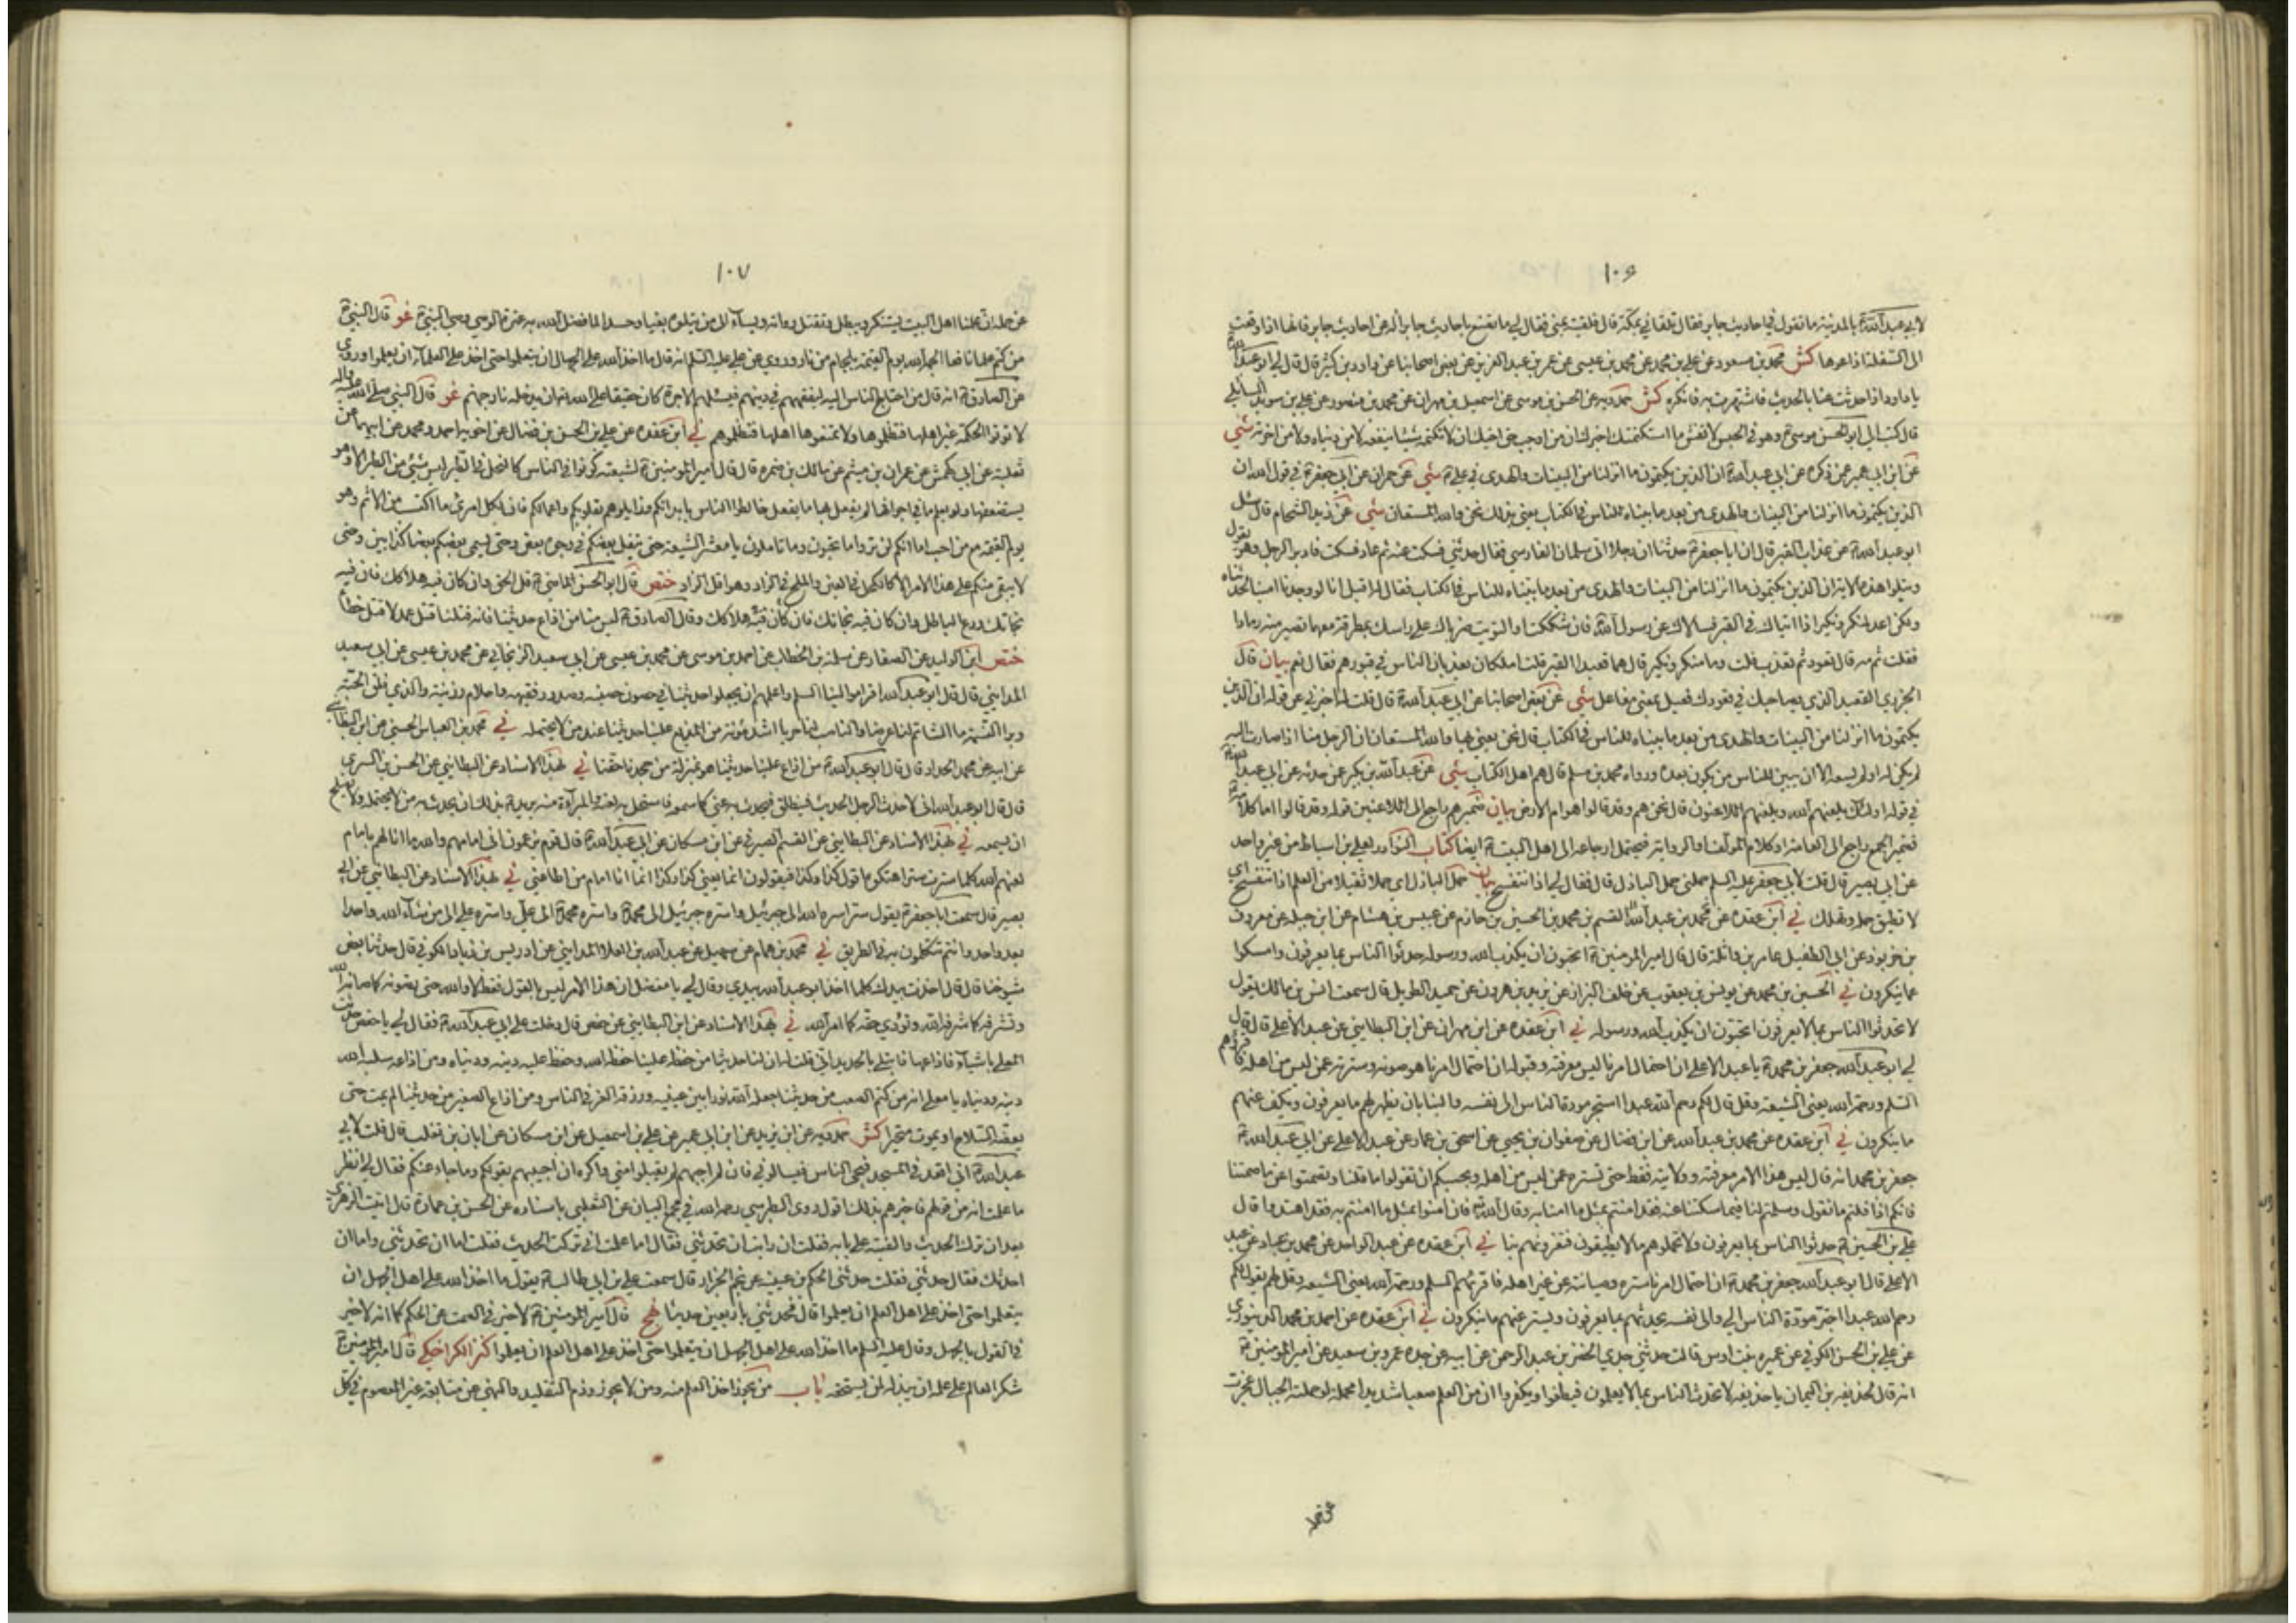 ١٠٦
لابي عبد الله ع بالمدينة ما تقول في احاديث جابر فقال تلقاني بمكة قال فلقيته بمنى فقال لي ما تصنع باحاديث جابر اله عن احاديث جابر فانها اذا وقعت
الى السفلة اذاعوها كش محمد بن مسعود عن علي بن محمد عن محمد بن عيسى عن عمر بن عبد العزيز عن بعض اصحابنا عن داود بن كثير قال قال لي ابو عبد الله ع
يا داود اذا حدثت عنا بالحديث فاشتهرت به فانكره كش حمدويه عن الحسن بن موسى عن اسمعيل بن مهران عن محمد بن منصور عن علي بن سويد السائي
قال كتب الي ابو الحسن موسى ع وهو في الحبس لا تفش ما استكتمتك اخبرك ان من اوجب حق اخيك ان لا تكتمه شيئا ينفعه لا من دنياه ولا من اخرته شي
عن ابن ابي عمير عمن ذكره عن ابي عبد الله ع ان الذين يكتمون ما انزلنا من البينات والهدى في علي ع شي عن حمران عن ابي جعفر ع في قول الله ان
الذين يكتمون ما انزلنا من البينات والهدى من بعد ما بيناه للناس في الكتاب يعني بذلك نحن والله المستعان شي عن زيد الشحام قال سئل
ابو عبد الله ع عن عذاب القبر قال ان ابا جعفر ع حدثنا ان رجلا اتى سلمان الفارسي فقال حدثني فسكت عنه ثم عاد فسكت فادبر الرجل وهو يقول
ويتلوا هذه الاية ان الذين يكتمون ما انزلنا من البينات والهدى من بعد ما بيناه للناس في الكتاب فقال له اقبل انا لو وجدنا امينا لحدثناه
ولكن اعد لمنكر ونكير اذا اتياك في القبر فسالاك عن رسول الله ص فان شككت او التويت ضرباك على راسك بمطرقة معهما تصير منه رمادا
فقلت ثم مه قال تعود ثم تعذب قلت وما منكر ونكير قال هما قعيدا القبر قلت املكان يعذبان الناس في قبورهم فقال نعم بيان قال
الجزري القعيد الذي يصاحبك في قعودك فعيل بمعنى مفاعل شي عن بعض اصحابنا عن ابي عبد الله ع قال قلت له اخبرني عن قوله ان الذين
يكتمون ما انزلنا من البينات والهدى من بعد ما بيناه للناس في الكتاب قال نحن يعني بها والله المستعان ان الرجل منا اذا صارت اليه
لم يكن له او لم يسعه الا ان يبين للناس من يكون بعده ورواه محمد بن مسلم قال هم اهل الكتاب شي عن عبد الله بن بكير عن حدثه عن ابي عبد الله ع
في قوله اولئك يلعنهم الله ويلعنهم اللاعنون قال نحن هم وقد قالوا هوام الارض بيان ضمير هم راجع الى اللاعنين قوله وقد قالوا اما كلامه ع
فضمير الجمع راجع الى العامة او كلام المؤلف او الرواية فيحتمل ارجاعه الى اهل البيت ع ايضا كتاب النوادر لعلي بن اسباط من غير واحد
عن ابي بصير قال قلت لابي جعفر عليه السلم حملني حمل الباذل قال فقال لي اذا تنفسخ بيان حمل الباذل اي حملا ثقيلا من العلم اذا تنفسخ اي
لا تطيق حمله وتهلك ني ابن عقدة عن محمد بن عبد الله القسم بن محمد بن الحسين بن حازم عن عبيس بن هشام عن ابن جبلة عن معروف
بن خربوذ عن ابي الطفيل عامر بن واثلة قال قال امير المؤمنين ع اتحبون ان يكذب الله ورسوله حدثوا الناس بما يعرفون وامسكوا
عما ينكرون ني الحسين بن محمد عن يوسف بن يعقوب عن خلف البزاز عن يزيد بن هرون عن حميد الطويل قال سمعت انس بن مالك يقول
لا تحدثوا الناس بما لا يعرفون اتحبون ان يكذب الله ورسوله ني ابن عقدة عن ابن مهران عن ابن البطايني عن عبد الاعلى قال قال
لي ابو عبد الله جعفر بن محمد ع يا عبد الاعلى ان احتمال امرنا ليس معرفته وقبوله ان احتمال امرنا هو صونه وسترته عمن ليس من اهله فاقراهم
السلم ورحمة الله يعني الشيعة وقل قال لكم رحم الله عبدا استجر مودة الناس الى نفسه والينا بان يظهر لهم ما يعرفون ويكف عنهم
ما ينكرون ني ابن عقدة عن محمد بن عبد الله عن ابن فضال عن صفوان بن يحيى عن اسحق بن عمار عن عبد الاعلى عن ابي عبد الله ع
جعفر بن محمد انه قال ليس هذا الامر معرفته وولايته فقط حتى تستره عمن ليس من اهله وبحسبكم ان تقولوا ما قلنا وتصمتوا عما صمتنا
فانكم اذا قلتم ما نقول وسلمتم لنا فيما سكتنا عنه فقد امنتم بمثل ما امنا به وقال الله تع فان امنوا بمثل ما امنتم به فقد اهتدوا قال
علي بن الحسين ع حدثوا الناس بما يعرفون ولا تحملوهم ما لا يطيقون فتغرونهم بنا ني ابن عقدة عن عبد الواحد عن محمد بن عباد عن عبد
الاعلى قال ابو عبد الله جعفر بن محمد ع ان احتمال امرنا ستره وصيانته عن غير اهله فاقرئهم السلم ورحمة الله يعني الشيعة وقل لهم يقول لكم
رحم الله عبدا اجتر مودة الناس الي والى نفسه يحدثهم بما يعرفون ويستر عنهم ما ينكرون ني ابن عقدة عن احمد بن محمد الدينوري
عن علي بن الحسن الكوفي عن عميرة بنت اوس قالت حدثني جدي الخضر بن عبد الرحمن عن ابيه عن جده عمرو بن سعيد عن امير المؤمنين ع
انه قال لحذيفة بن اليمان يا حذيفة لا تحدث الناس بما لا يعلمون فيطغوا ويكفروا ان من العلم صعبا شديدا محمله لو حملته الجبال عجزت
عن حمله
١٠٧
عن حمله ان علمنا اهل البيت يستنكر ويبطل وتقتل رواته ويساء الى من يتلوه بغيا وحسدا لما فضل الله به عترة الوصي وصي النبي ص غو قال النبي ص
من كتم علما نافعا الجمه الله يوم القيمة بلجام من نار وروي عن علي عليه السلم انه قال ما اخذ الله على الجهال ان يتعلموا حتى اخذ على العلماء ان يعلموا وروي
عن الصادق ع انه قال من احتاج الناس اليه ليفقههم في دينهم فيسئلهم الاجرة كان حقيقا على الله تع ان يدخله نار جهنم غو قال النبي صلى الله عليه واله
لا تؤتوا الحكمة غير اهلها فتظلموها ولا تمنعوها اهلها فتظلموهم ني ابن عقدة عن علي بن الحسن بن فضال عن اخويه احمد ومحمد عن ابيهما عن
ثعلبة عن ابي كهمش عن عمران بن ميثم عن مالك بن ضمرة قال قال امير المؤمنين ع لشيعته كونوا في الناس كالنحل في الطير ليس شيء من الطير الا وهو
يستضعفها ولو يعلم ما في اجوافها لم يفعل بها ما يفعل خالطوا الناس بابدانكم وزايلوهم بقلوبكم واعمالكم فان لكل امرئ ما اكتسب من الاثم وهو
يوم القيمة مع من احب اما انكم لن تروا ما تحبون وما تاملون يا معشر الشيعة حتى يتفل بعضكم في وجوه بعض وحتى يسمي بعضكم بعضا كذابين وحتى
لا يبقى منكم على هذا الامر الا كالكحل في العين والملح في الزاد وهو اقل الزاد ختص قال ابو الحسن الماضي ع قل الحق وان كان فيه هلاكك فان فيه
نجاتك ودع الباطل وان كان فيه نجاتك فان كان فيه هلاكك وقال الصادق ع ليس منا من اذاع حديثنا فانه قتلنا قتل عمد لا قتل خطأ
ختص ابن الوليد عن الصفار عن سلمة بن الخطاب عن احمد بن موسى عن محمد بن عيسى عن ابي سعيد الزنجاني عن محمد بن عيسى عن ابي سعيد
المدايني قال قال ابو عبد الله ع اقراموالينا السلم واعلمهم ان يجعلوا حديثنا في حصون حصينة وصدور فقيهة واحلام رزينة والذي فلق الحبة
وبرا النسمة ما الشاتم لنا عرضا والناصب لنا حربا اشد مؤنة من المذيع علينا حديثنا عند من لا يحتمله ني محمد بن العباس الحسني عن ابن البطايني
عن ابيه عن محمد الحداد قال قال ابو عبد الله ع من اذاع علينا حديثنا هو بمنزلة من جحدنا حقنا ني بهذا الاسناد عن البطايني عن الحسن بن السري
قال قال ابو عبد الله ع اني لاحدث الرجل الحديث فينطلق فيحدث به عني كما سمعه فاستحل به لعنه والبراءة منه يريد ع بذلك ان يحدث به من لا يحتمله ولا يصلح
ان يسمعه ني بهذا الاسناد عن البطايني عن القسم الصيرفي عن ابن مسكان عن ابي عبد الله ع قال قوم يزعمون اني امامهم والله ما انا لهم بامام
لعنهم الله كلما سترت سترا هتكوه اقول كذا وكذا فيقولون انما يعني كذا وكذا انما انا امام من اطاعني ني بهذا الاسناد عن البطايني عن ابي
بصير قال سمعت ابا جعفر ع يقول سر اسره الله الى جبرئيل واسره جبرئيل الى محمد ص واسره محمد ص الى علي واسره علي الى من شاء الله واحدا
بعد واحد وانتم تتكلمون به في الطريق ني محمد بن همام عن سهيل عن عبد الله بن العلا المدايني عن ادريس بن زياد الكوفي قال حدثنا بعض
شيوخنا قال قال اخذت بيدك كما اخذ ابو عبد الله بيدي وقال لي يا مفضل ان هذا الامر ليس بالقول فقط لا والله حتى يصونه كما صانه الله
وتشرفه كما شرفه الله وتؤدي حقه كما امر الله ني بهذا الاسناد عن ابن البطايني عن حفص قال دخلت على ابي عبد الله ع فقال لي يا حفص حدثت
المعلى باشياء فاذاعها فابتلي بالحديد اني قلت له ان لنا حديثا من حفظه علينا حفظه الله وحفظ عليه دينه ودنياه ومن اذاعه سلبه الله
دينه ودنياه يا معلى انه من كتم الصعب من حديثنا جعله الله نورا بين عينيه ورزقه العز في الناس ومن اذاع الصغير من حديثنا لم يمت حتى
يعضه السلاح او يموت متحيرا كش حمدويه عن ابن يزيد عن ابن ابي عمير عن علي بن اسمعيل عن ابن مسكان عن ابان بن تغلب قال قلت لابي
عبد الله ع اني اقعد في المسجد فيجي الناس فيسالوني فان لم اجبهم لم يقبلوا مني واكره ان اجيبهم بقولكم وما جاء عنكم فقال لي انظر
ما علمت انه من قولهم فاخبرهم بذلك اقول روى الطبرسي رحمه الله في مجمع البيان عن الثعلبي باسناده عن الحسن بن عمارة قال اتيت الزهري
بعد ان ترك الحديث والفيته على بابه فقلت ان رايت ان تحدثني فقال اما علمت اني تركت الحديث فقلت اما ان تحدثني واما ان
احدثك فقال حدثني فقلت حدثني الحكم بن عيينة عن نجم الجزار قال سمعت علي بن ابي طالب ع يقول ما اخذ الله على اهل الجهل ان
يتعلموا حتى اخذ على اهل العلم ان يعلموا قال فحدثني باربعين حديثا نهج قال امير المؤمنين ع لا خير في الصمت عن الحكم كما انه لا خير
في القول بالجهل وقال عليه السلم ما اخذ الله على اهل الجهل ان يتعلموا حتى اخذ على اهل العلم ان يعلموا كنز الكراجكي قال امير المؤمنين ع
شكر العالم على علمه ان يبذله لمن يستحقه باب من يجوز اخذ العلم منه ومن لا يجوز وذم التقليد والنهي عن متابعة غير المعصوم في كل